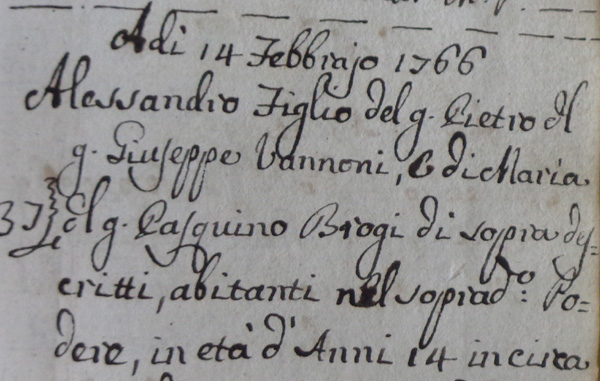 Adi 14 Febbrajo 1766
Alessandro Figlio del g. Pietro del
g. Giuseppe Vannoni, e di Maria
del g. Pasquino Brogi di sopra des=
critti, abitanti nel soprad.º Po=
dere, in età d'Anni 14 in circa